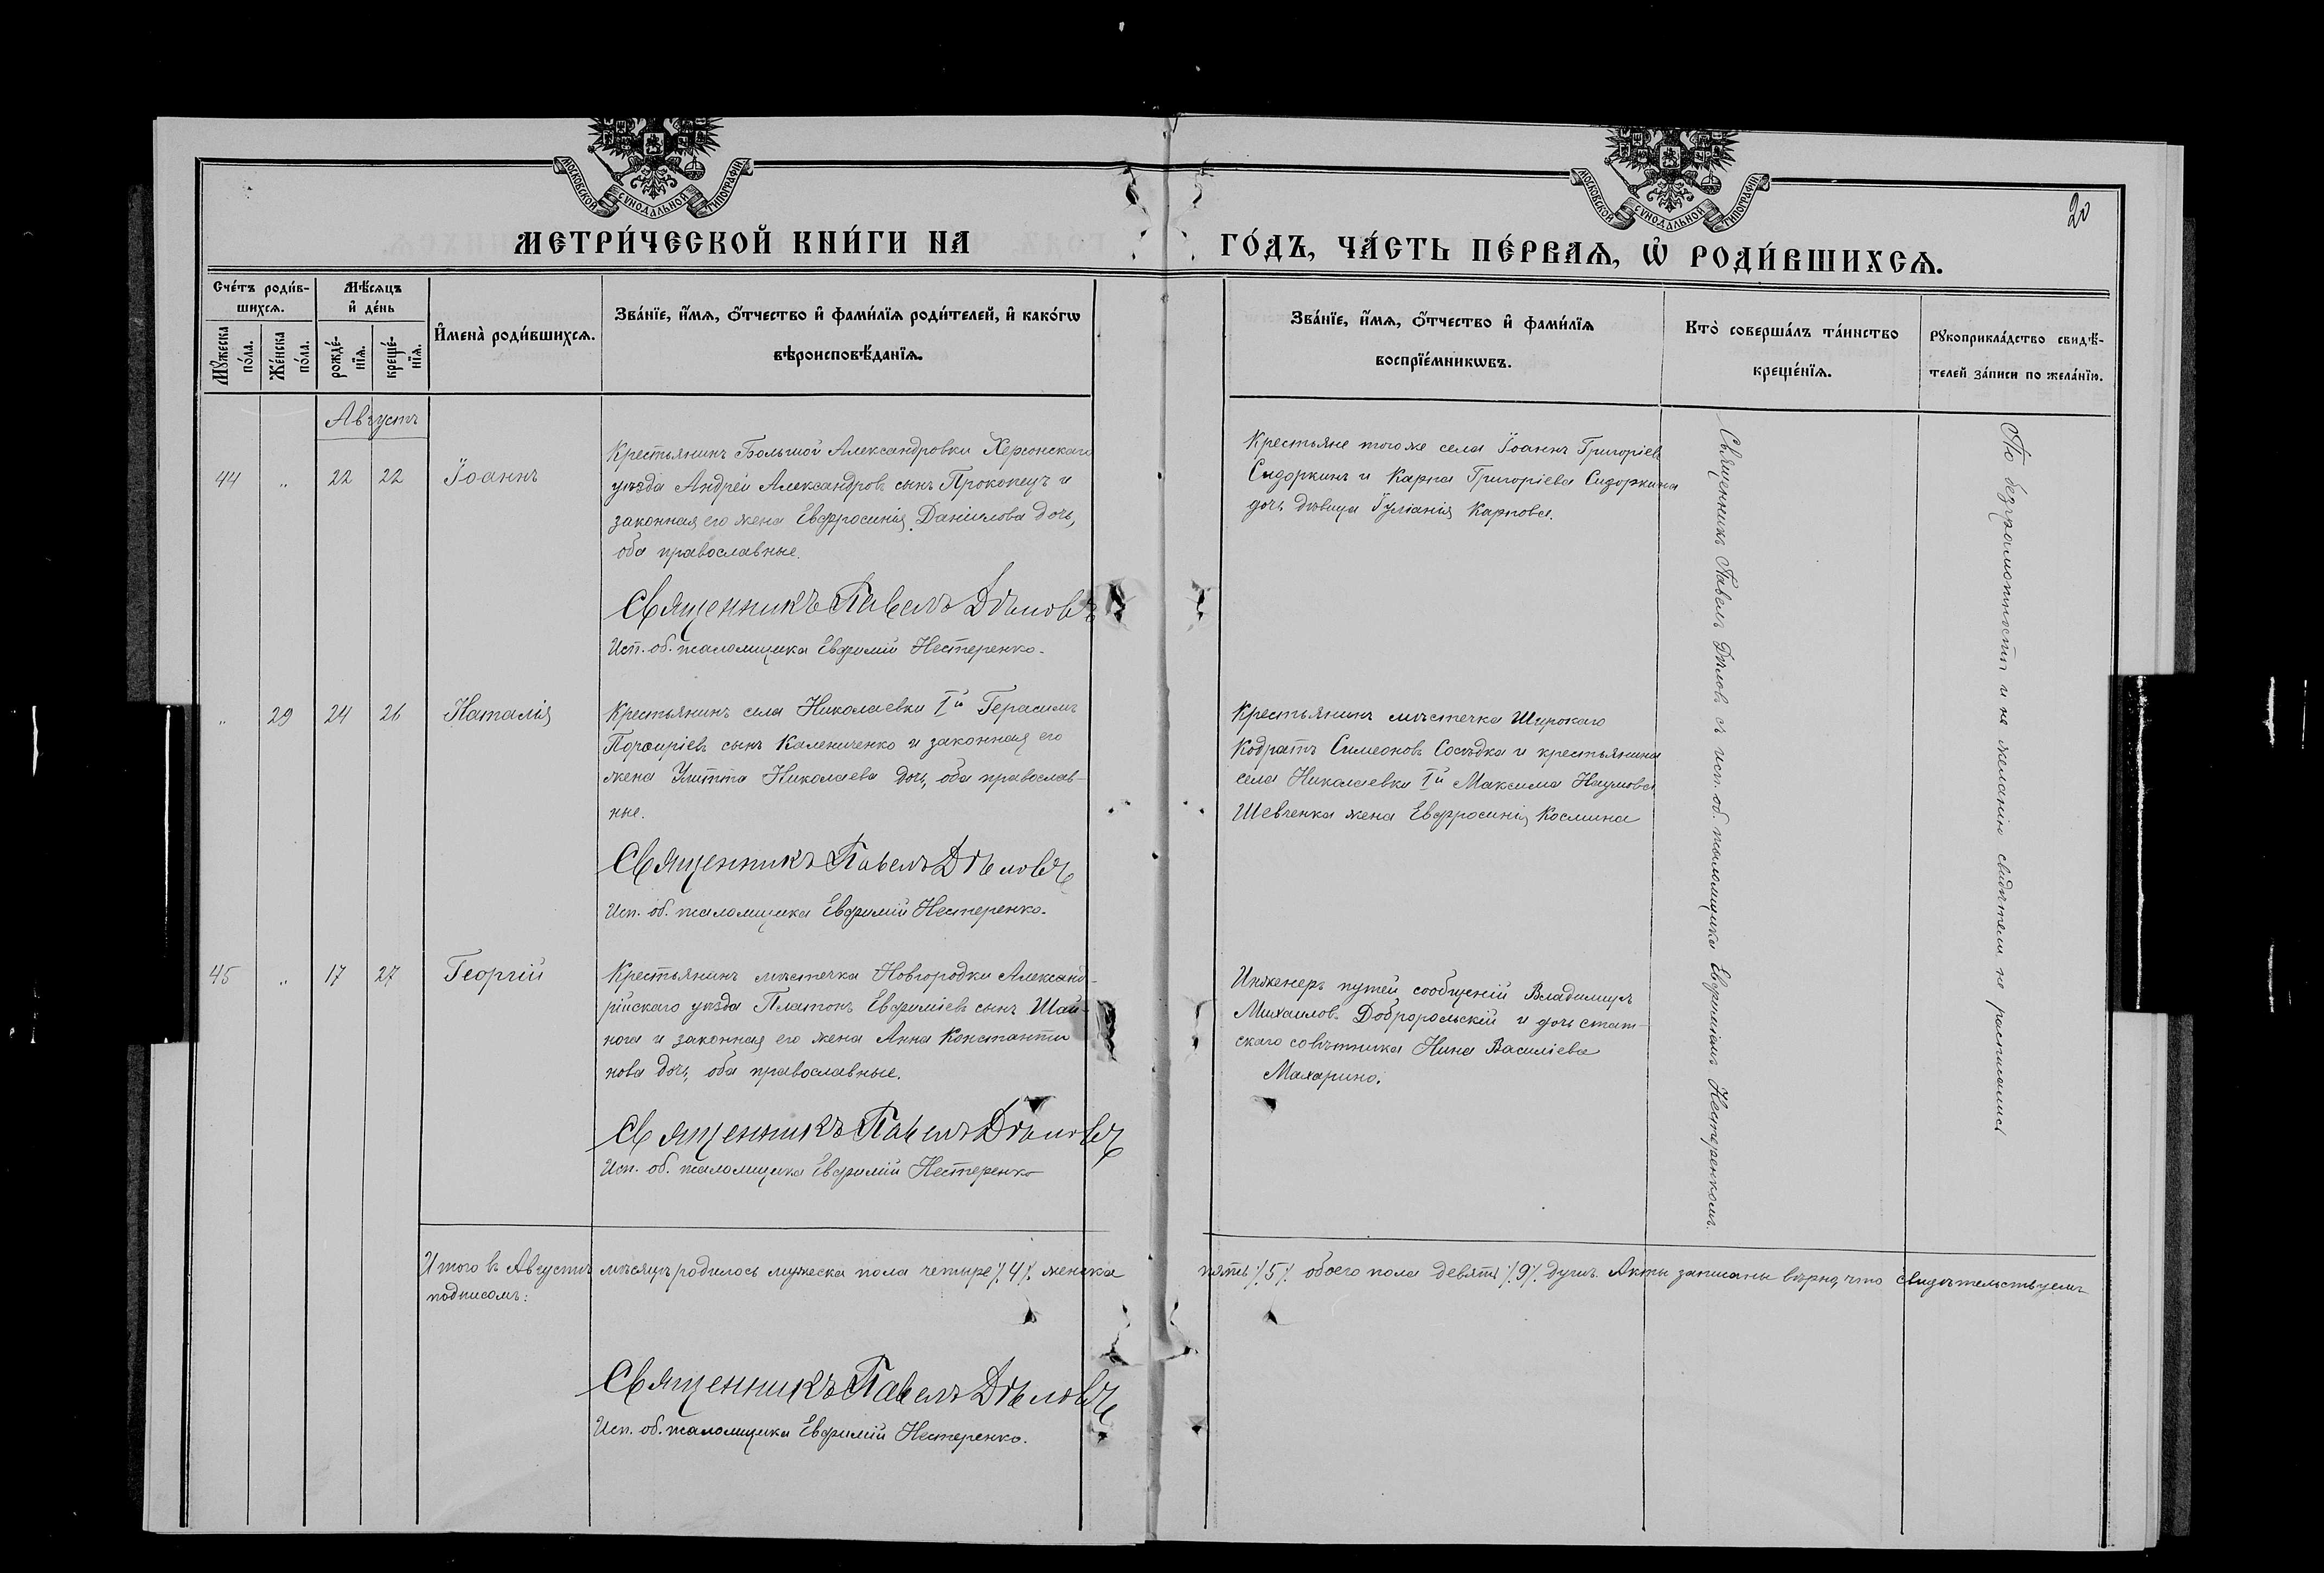 МОСКОВСКОЙ СѴНОДАЛЬНОЙ ТИПОГРАФІИ
МОСКОВСКОЙ СѴНОДАЛЬНОЙ ТИПОГРАФІИ
20
МЕТРИ́ЧЕСКОЙ КНИ́ГИ НА
ГО́ДЪ, ЧА́СТЬ ПЕ́РВАѦ, Ѡ҆ РОДИ́ВШИХСѦ.
Сче́тъ роди́в-
шихсѧ.
Мꙋ́жеска по́ла.
Же́нска по́ла.
Мѣ́сѧцъ
и҆ де́нь
рожде́-
нїѧ.
креще́-
нїѧ.
И҆мена̀ роди́вшихсѧ.
Зва́нїе, и҆́мѧ, ѻ҆́тчество и҆ фами́лїѧ роди́телей, и҆ како́гѡ
вѣроисповѣ́данїѧ.
Зва́нїе, и҆́мѧ, ѻ҆́тчество и҆ фами́лїѧ
воспрїе́мникѡвъ.
Кто̀ соверша́лъ та́инство
креще́нїѧ.
Рꙋкоприкла́дство свидѣ́-
телей за́писи по жела́нїю.
Августъ
44 „ 22 22 Іоаннъ
Крестьянинъ Большой Александровки Херсонскаго
уѣзда Андрей Александровъ сынъ Прокопецъ и
законная его жена Евфросинія Даніилова дочь,
оба православные.
Священникъ Павелъ Дѣловъ
Исп. об. псаломщика Евфимій Нестеренко.
Крестьяне того же села Іоаннъ Григоріевъ
Сидоркинъ и Карпа Григоріева Сидоркина
дочь дѣвица Іуліанія Карпова.
Священникъ Павелъ Дѣловъ съ исп. об. псаломщика Евфиміемъ Нестеренкомъ.
По безграмотности и не желанію свидѣтели не расписались
„ 29 24 26 Наталія
Крестьянинъ села Николаевки Iй Герасимъ
Порфиріевъ сынъ Калениченко и законная его
жена Улитта Николаева дочь, оба православ-
ные.
Священникъ Павелъ Дѣловъ
Исп. об. псаломщика Евфимій Нестеренко.
Крестьянинъ мѣстечка Широкаго
Кодратъ Симеоновъ Сосѣдка и крестьянина
села Николаевки Iй Максима Наумова
Шевченка жена Евфросинія Космина
45 „ 17 27 Георгій
Крестьянинъ мѣстечка Новгородки Александ-
рійскаго уѣзда Платонъ Евфиміевъ сынъ Шай-
нога и законная его жена Анна Константи
нова дочь, оба православные.
Священникъ Павелъ Дѣловъ
Исп. об. псаломщика Евфимій Нестеренко
Инженеръ путей сообщеній Владимиръ
Михаиловъ и дочь стат-
скаго совѣтника Нина Василіева
Махарино.
Итого въ Августѣ мѣсяцѣ родилось мужеска пола четыре ⁒4⁒ женска пять ⁒5⁒ обоего пола девять ⁒9⁒ душъ. Акты записаны вѣрно, что свидѣтельствуемъ
подписомъ:
Священникъ Павелъ Дѣловъ
Исп. об. псаломщика Евфимій Нестеренко.